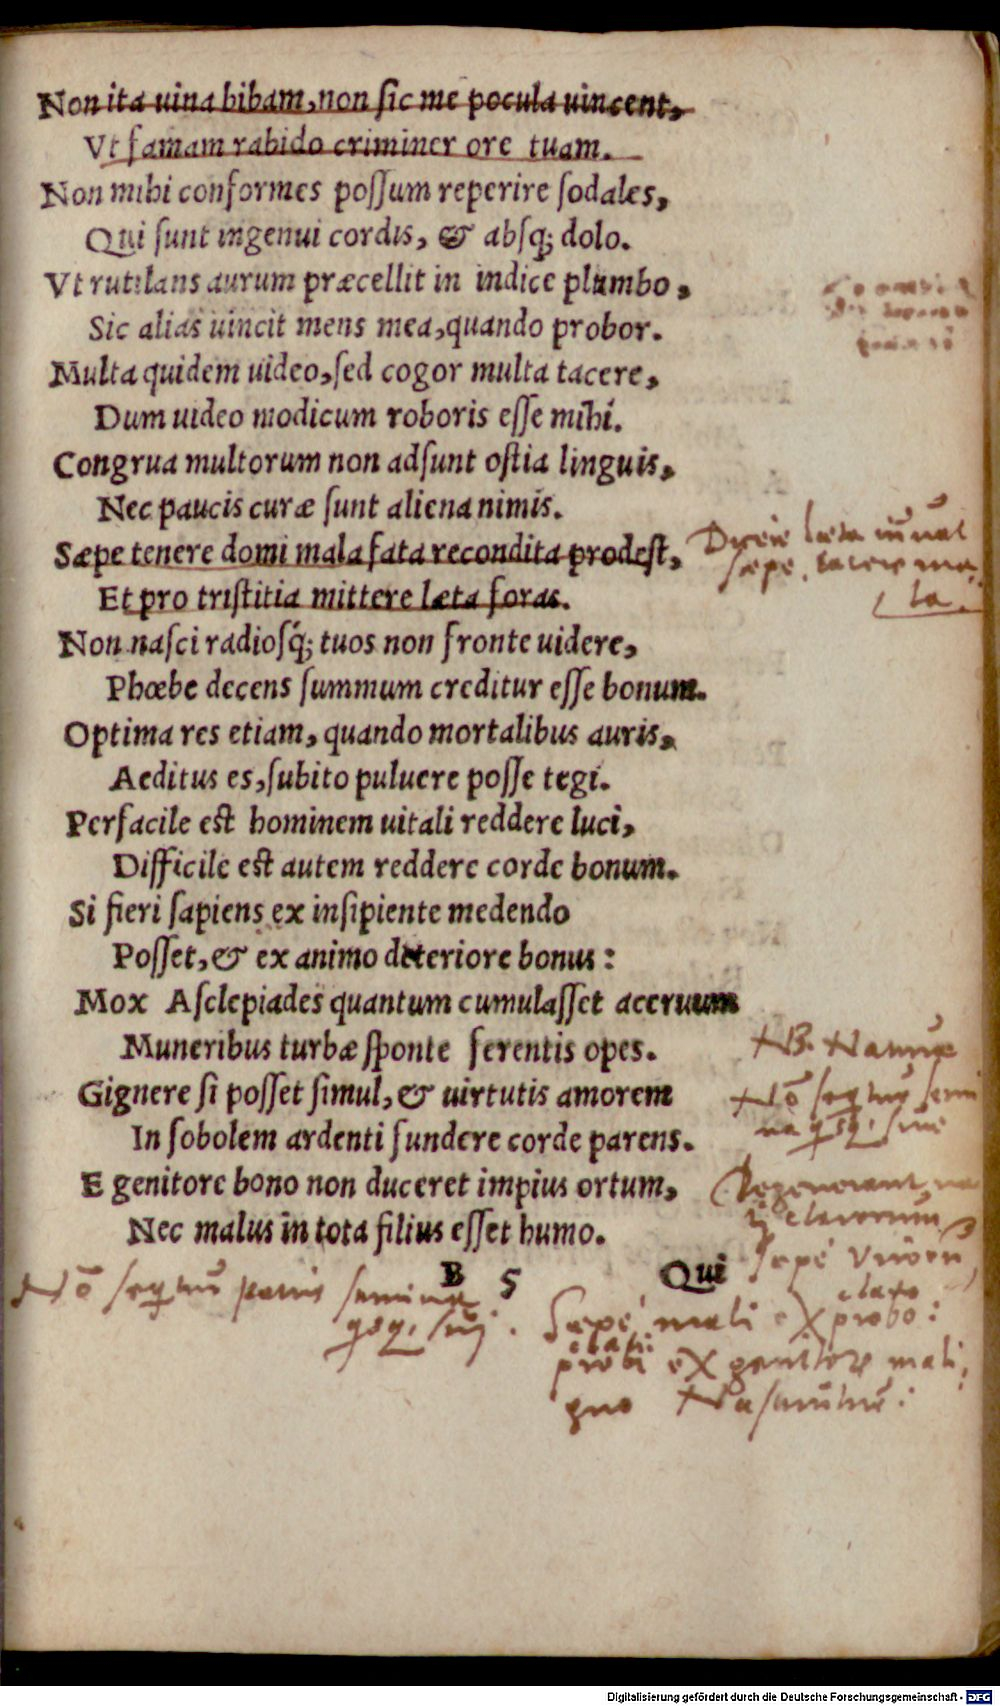 Non ita uina bibam, non ſic me pocula uincent,
Vt famam rabido criminer ore tuam.
Non mihi conformes poſſum reperire ſodales,
Qui ſunt ingenui cordis, & abſq; dolo.
Vt rutilans aurum præcellit in indice plumbo,
Sic alias uincit mens mea, quando probor.
Multa quidem uideo, ſed cogor multa tacere,
Dum uideo modicum roboris eſſe mihi.
Congrua multorum non adſunt oſtia linguis,
Nec paucis curæ ſunt aliena nimis.
Sæpe tenere domi mala fata recondita prodeſt,
Et pro triſtitia mittere læta foras.
Non naſci radioſq́; tuos non fronte uidere,
Phœbe decens ſummum creditur eſſe bonum.
Optima res etiam, quando mortalibus auris,
Aeditus es, ſubito puluere poſſe tegi.
Perfacile eſt hominem uitali reddere luci,
Difficile eſt autem reddere corde bonum.
Si fieri ſapiens ex inſipiente medendo
Poſſet, & ex animo deteriore bonus:
Mox Aſclepiades quantum cumulaſſet aceruum
Muneribus turbæ ſponte ferentis opes.
Gignere ſi poſſet ſimul, & uirtutis amorem
In ſobolem ardenti fundere corde parens.
E genitore bono non duceret impius ortum,
Nec malus in tota filius eſſet humo.
B 5 Qui
læta iuuat
ſæpe, tacere ma
la.
NB. Naturæ
Nō ſequitur ſemi
na
Degenerant na
ti clarorum
ſæpè virorū
Nō ſequitur patris ſemina
Sæpè mali ex probo:
probi ex genitore mali
gno Naſcuntur:
Digitalisierung gefördert durch die Deutsche Forschungsgemeinschaft - DFG